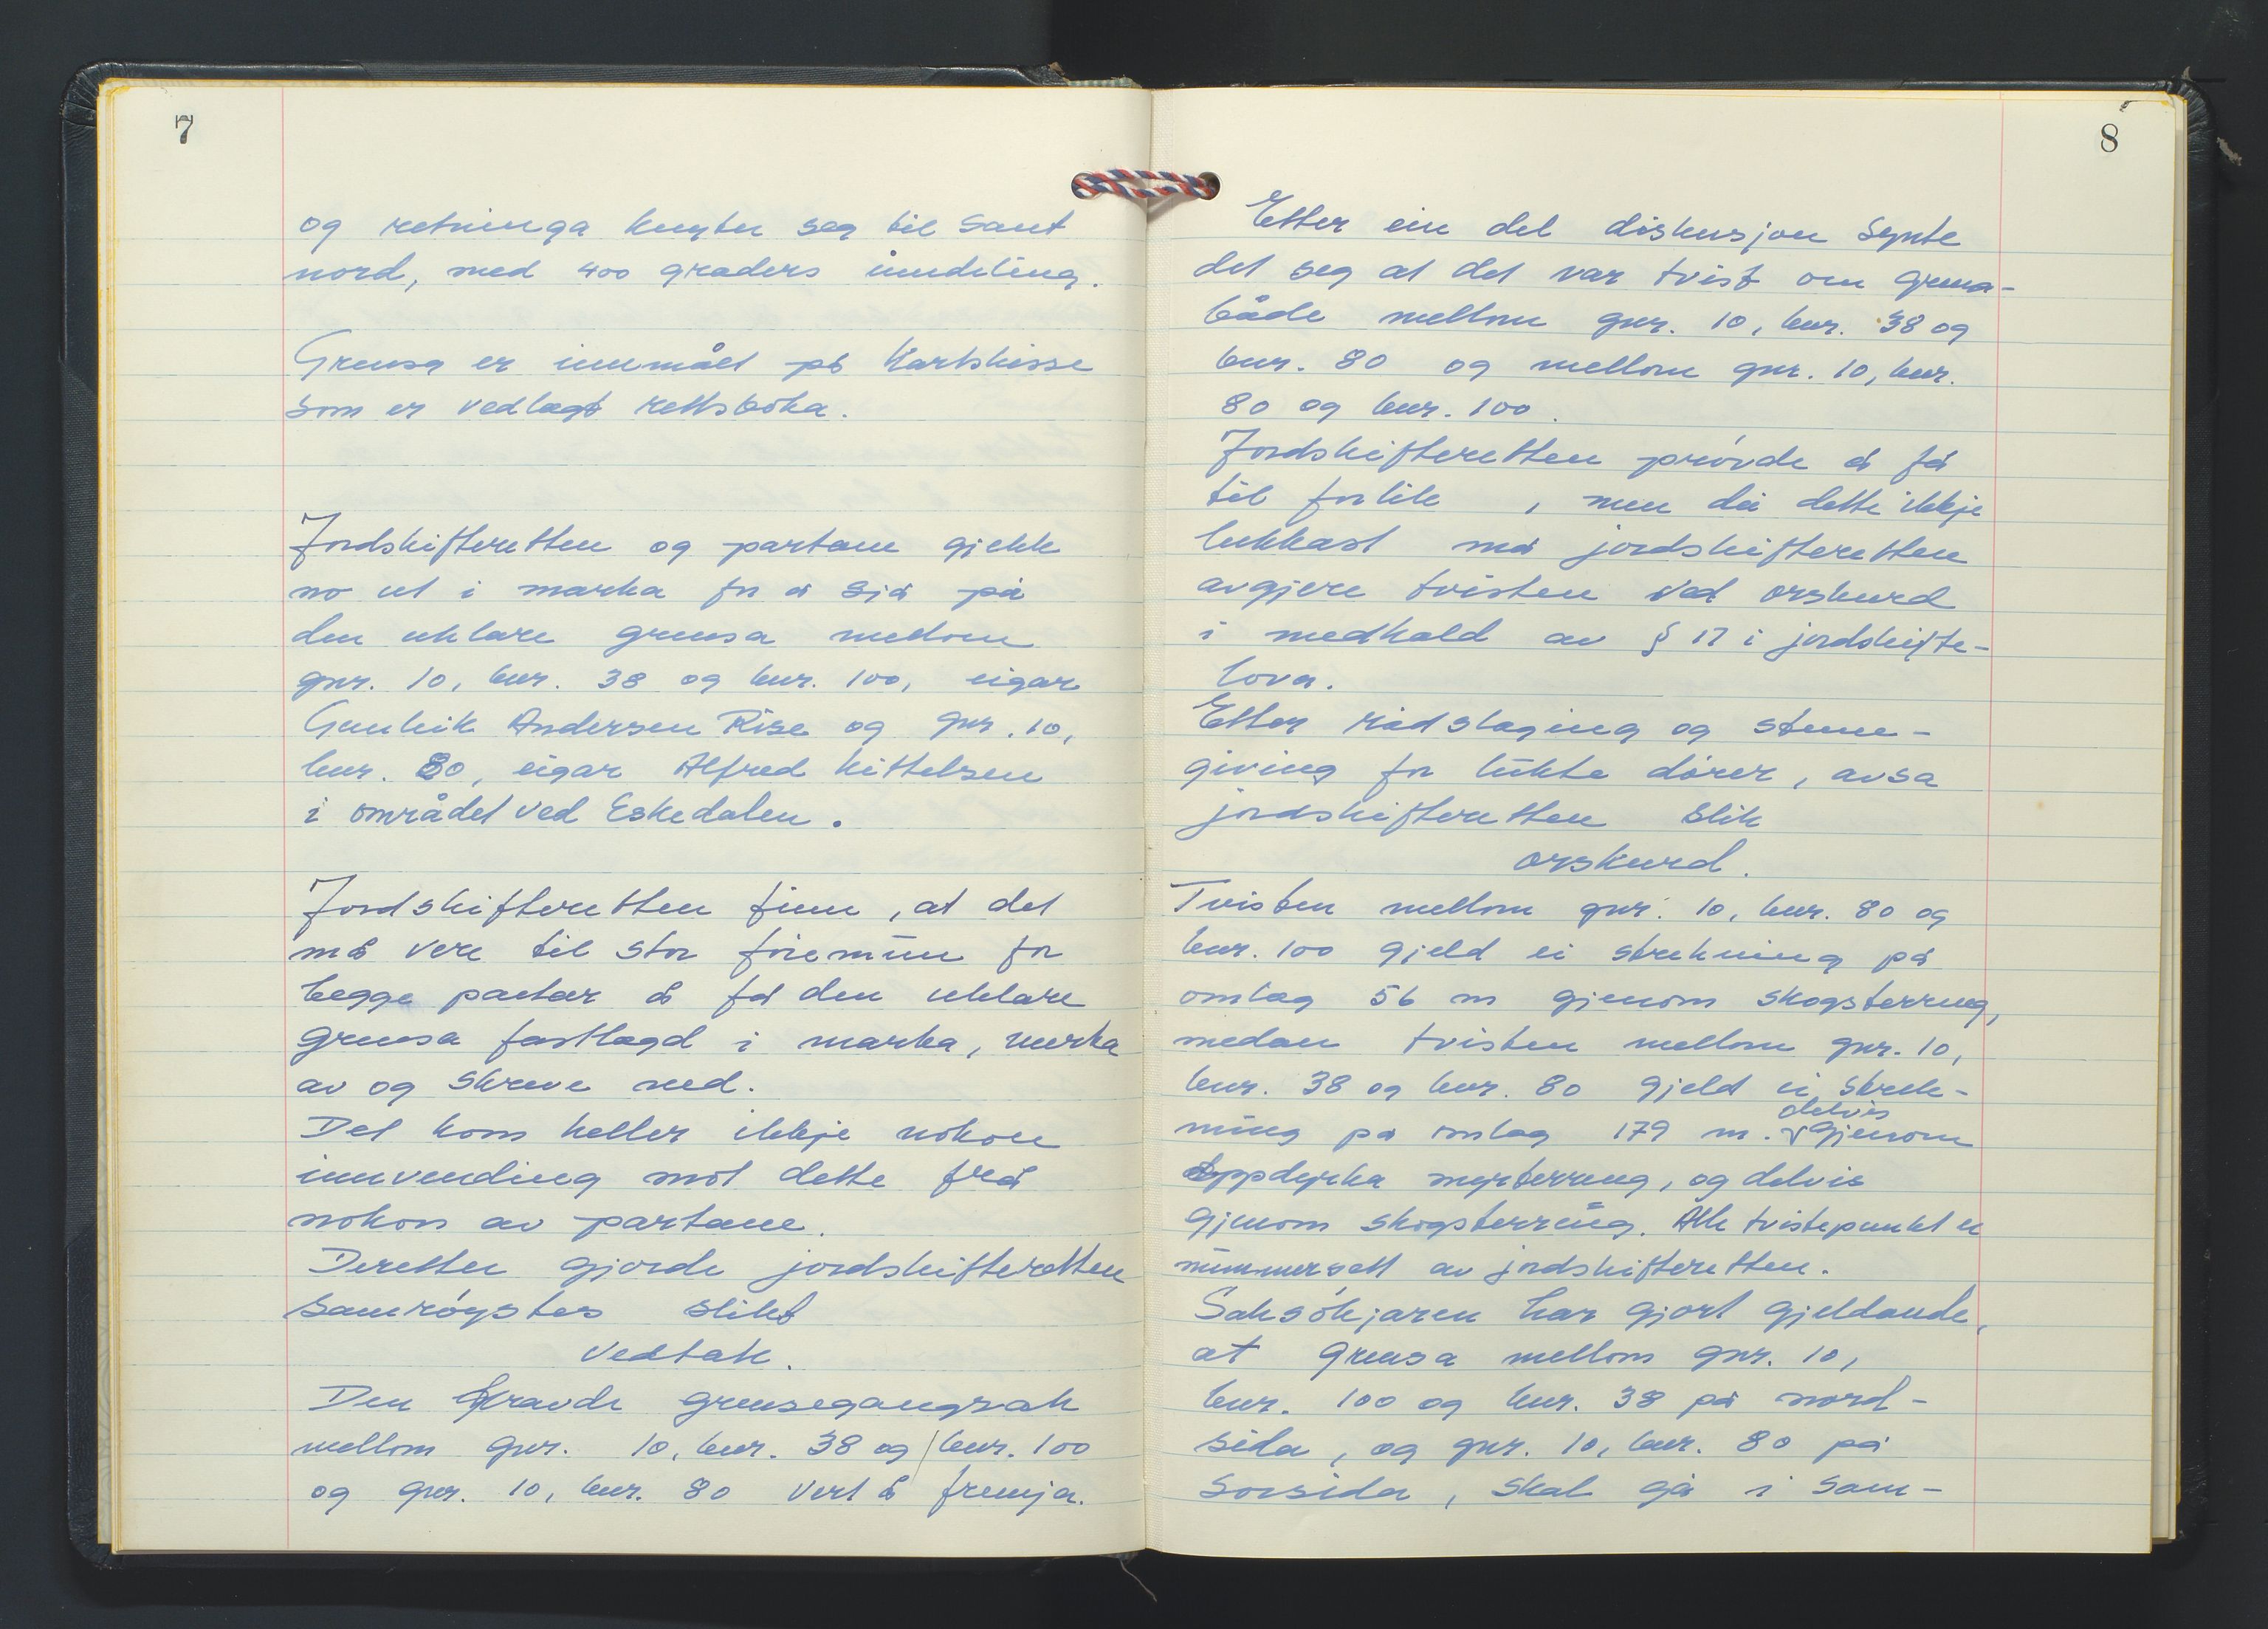 7
og retninga knyter seg til sant
nord, med 400 graders inndeling.
Grensa er innmålt på kartskisse
som er vedlagt rettsboka.
Jordskifteretten og partane gjekk
no ut i marka for å sjå på
den uklare grensa mellom
gnr. 10, bnr. 38 og bnr. 100, eigar
Gunleik Andersen Rise og gnr. 10,
bnr. 80, eigar Alfred Kittelsen
i området ved Eskedalen.
Jordskifteretten finn, at det
må vere til stor føremun for
begge partar å få den uklare
grensa fastlagd i marka, merka
av og skreve ned.
Det kom heller ikkje nokon
innvending mot dette frå
nokon av partane.
Deretter gjorde jordskifteretten
samrøystes slikt
vedtak.
Den kravde grensegangsak
mellom gnr. 10, bnr. 38 og / bnr. 100
og gnr. 10, bnr. 80 vert å fremja.
8
Etter ein del diskusjon synte
det seg at det var tvist om grensa-
både mellom gnr. 10, bnr. 38 og
bnr. 80 og mellom gnr. 10, bnr.
80 og bnr. 100.
Jordskifteretten prøvde å få
til forlik , men då dette ikkje
lukkast må jordskifteretten
avgjere tvisten ved orskurd
i medhald av § 17 i jordskifte-
lova.
Etter rådslaging og stemme-
giving for lukte dører, avsa
jordskifteretten slik
orskurd.
Tvisten mellom gnr. 10, bnr. 80 og
bnr. 100 gjeld ei strekning på
omlag 56 m gjenom skogsterreng,
medan tvisten mellom gnr. 10,
bnr. 38 og bnr. 80 gjeld ei strek-
ning på omlag 179 m. delvis gjenom
oppdyrka myrterreng, og delvis
gjenom skogsterreng. Alle tvistepunkt er
nummersett av jordskifteretten.
Saksøkjaren har gjort gjeldande,
at grensa mellom gnr. 10,
bnr. 100 og bnr. 38 på nord-
sida, og gnr. 10, bnr. 80 på
sørsida, skal gå i sam-